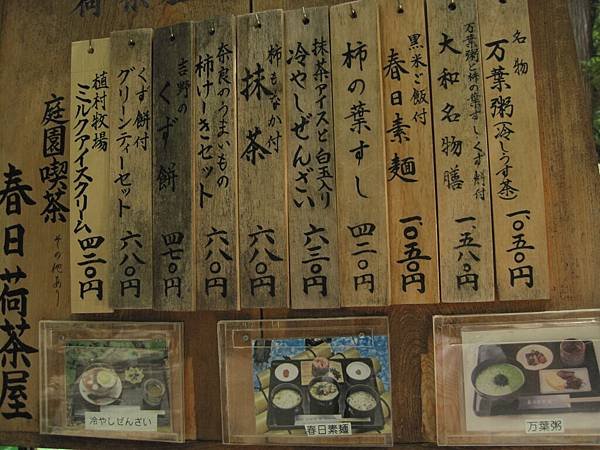 名物
万葉粥(冷しうす茶)
一、〇五〇円
万葉粥と柿の葉すし、くず餅付
大和名物膳
一、五八〇円
黒米ご飯付
春日素麺
一、〇五〇円
柿の葉すし
四二〇円
抹茶アイスと白玉入り
冷やしぜんざい
六三〇円
柿もなか付
抹茶
六八〇円
奈良のうまいもの
柿けーきセット
六八〇円
吉野の
くず餅
四七〇円
くず餅付
グリーンティーセット
六八〇円
植村牧場
ミルクアイスクリーム
四二〇円
その他あり
庭園喫茶
春日荷茶屋
冷やしぜんざい
春日素麺
万葉粥